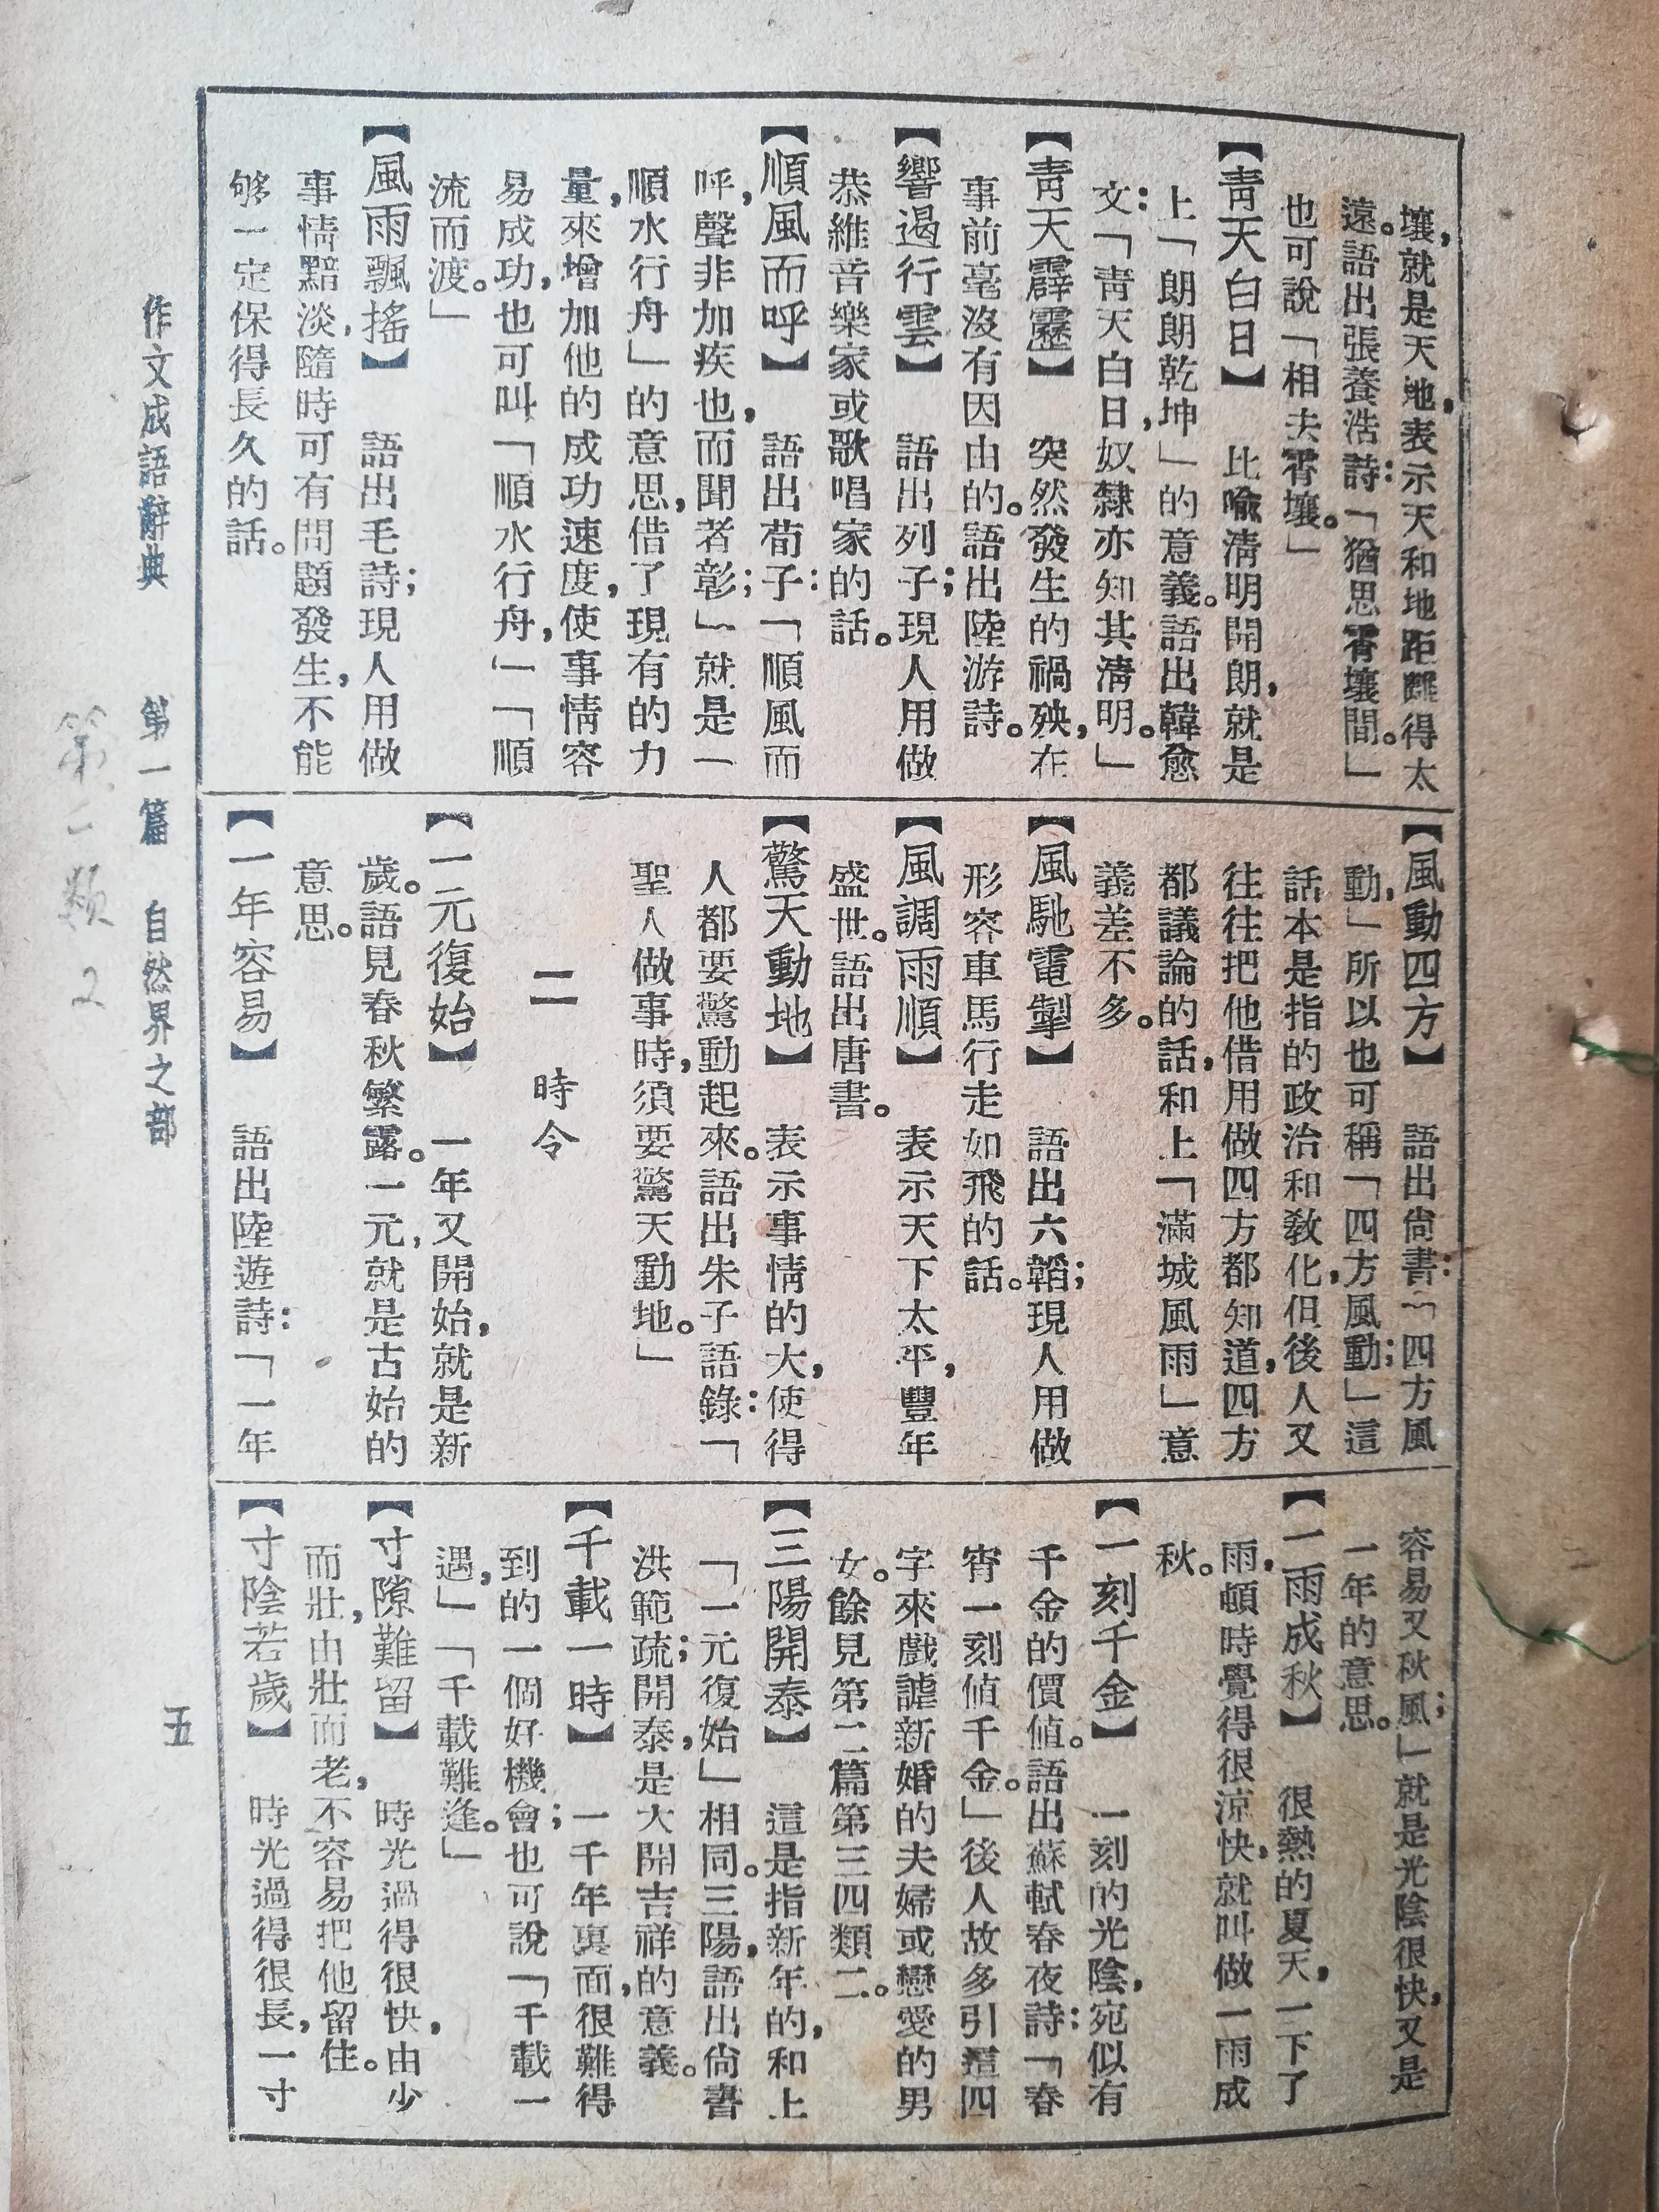 壤,就是天地,表示天和地距離得太
遠。語出張養浩詩:「猶思霄壤間。」
也可說「相去霄壤。」
【靑天白日】 比喩淸明開朗,就是
上「朗朗乾坤」的意義。語出韓愈
文:「靑天白日,奴隸亦知其淸明。」
【靑天霹靂】 突然發生的禍殃,在
事前毫沒有因由的。語出陸游詩。
【響遏行雲】 語出列子;現人用做
恭維音樂家或歌唱家的話。
【順風而呼】 語出荀子:「順風而
呼,聲非加疾也,而聞者彰;」就是「
順水行舟」的意思,借了現有的力
量,來增加他的成功速度,使事情容
易成功,也可叫「順水行舟,」「順
流而渡。」
【風雨飄搖】 語出毛詩;現人用做
事情黯淡,隨時可有問題發生,不能
够一定保得長久的話。
【風動四方】 語出尙書:「四方風
動,」所以也可稱「四方風動;」這
話本是指的政治和敎化,但後人又
往往把他借用做四方都知道,四方
都議論的話,和上「滿城風雨」意
義差不多。
【風馳電掣】 語出六韜;現人用做
形容車馬行走如飛的話。
【風調雨順】 表示天下太平,豐年
盛世。語出唐書。
【驚天動地】 表示事情的大,使得
人都要驚動起來。語出朱子語錄:「
聖人做事時,須要驚天動地。」
二 時令
【一元復始】 一年又開始,就是新
歲。語見春秋繁露。一元,就是古始的
意思。
【一年容易】 語出陸遊詩:「一年
容易又秋風;」就是光陰很快,又是
一年的意思。
【一雨成秋】 很熱的夏天,一下了
雨,頓時覺得很涼快,就叫做一雨成
秋。
【一刻千金】 一刻的光陰,宛似有
千金的價値。語出蘇軾春夜詩:「春
宵一刻値千金。」後人故多引這四
字來戲謔新婚的夫婦或戀愛的男
女。餘見第二篇第三四類二。
【三陽開泰】 這是指新年的,和上
「一元復始」相同。三陽,語出尙書
洪範疏;開泰,是大開吉祥的意義。
【千載一時】 一千年裏面,很難得
到的一個好機會;也可說「千載一
遇,」「千載難逢。」
【寸隙難留】 時光過得很快,由少
而壯,由壯而老,不容易把他留住。
【寸陰若歲】 時光過得很長,一寸
作文成語辭典 第一篇 自然界之部
五
第一類 2